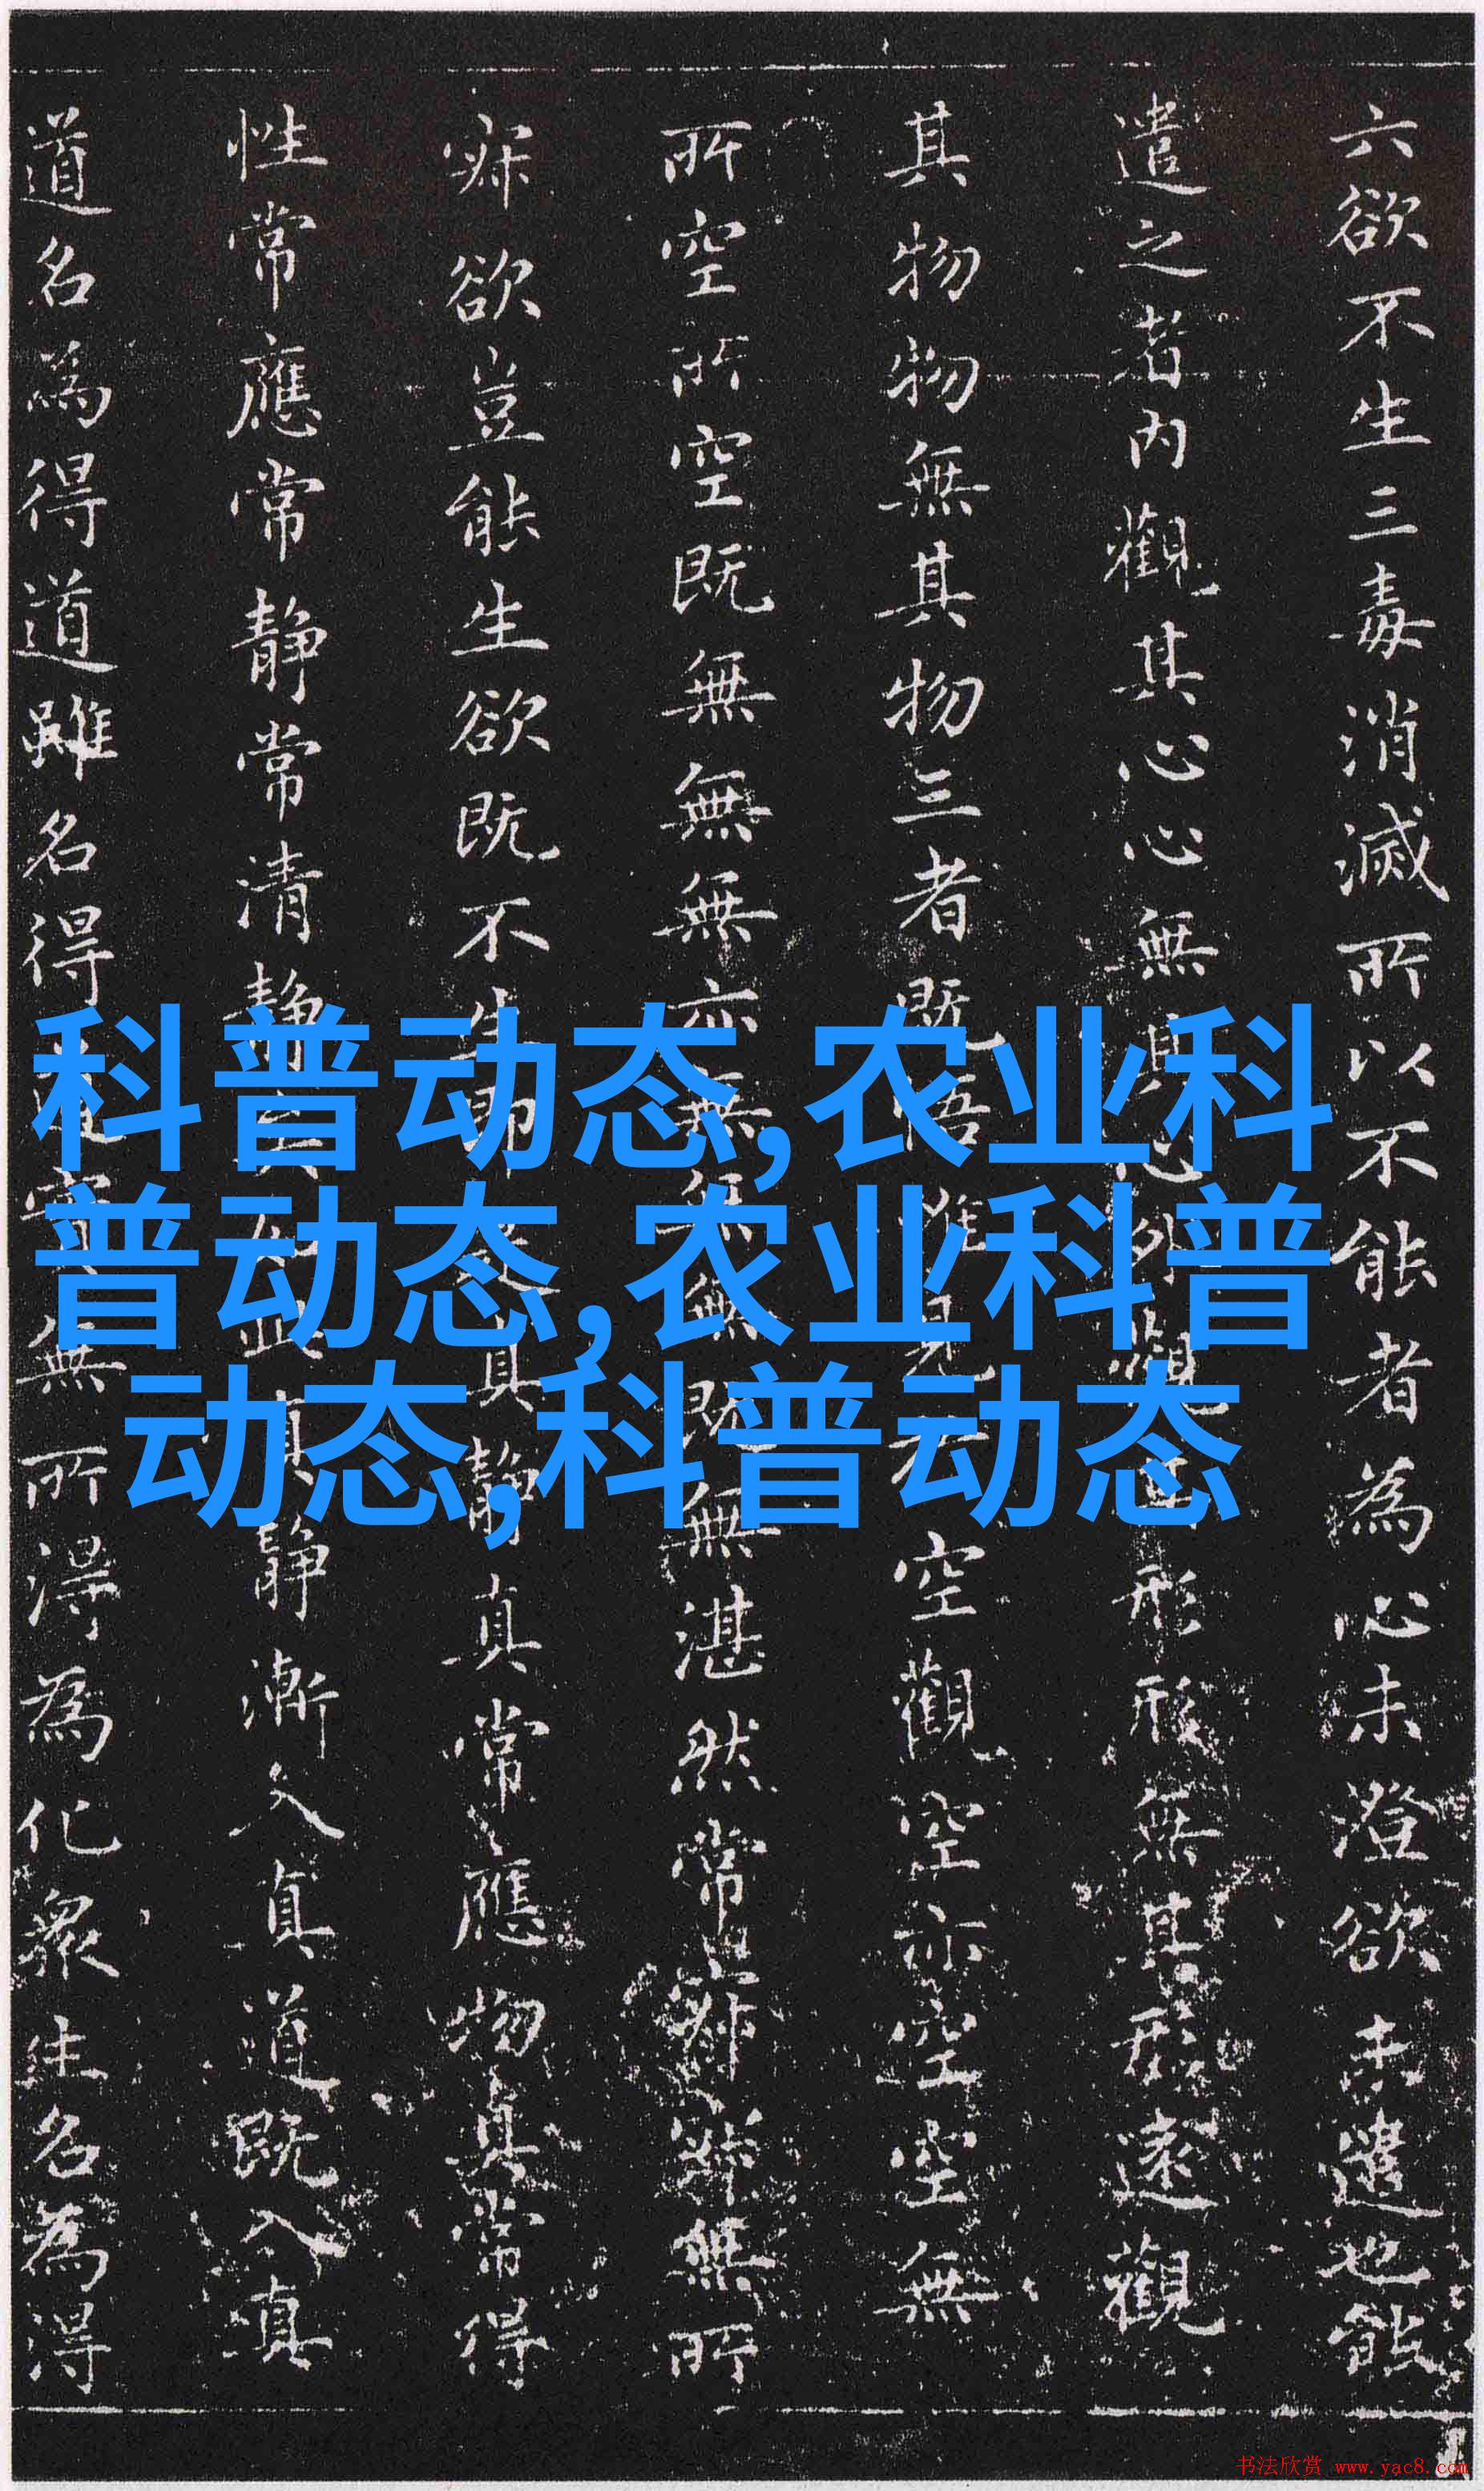 六欲不生三毒消滅所以不能者為心未澄欲未遣也能
遣之者內觀其心心無其心外觀其形形無其形遠觀
其物物無其物三者既悟唯見空觀空亦空空無
所空所空既無無無亦無無無既無湛然常寂寂無所
寂欲豈能生欲既不生即真静真常應物真常得
性常應常静常清静矣如此真静漸入真道既入真
道名為得道雖名得道實無所得為化眾生名為得
科普动态,农业科
普动态,农业科普
动态,科普动态
书法欣赏 www.yac8.com